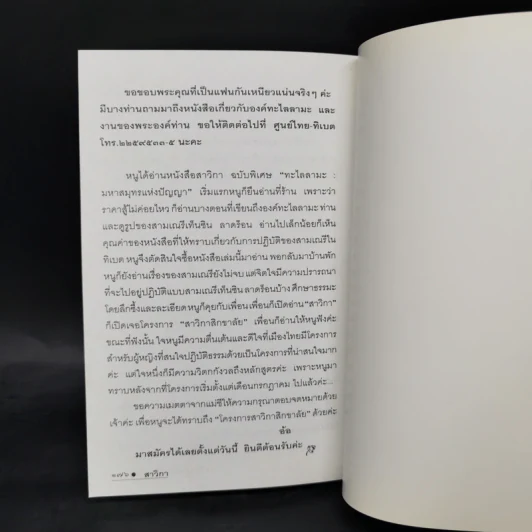 ขอขอบพระคุณที่เป็นแฟนกันเหนียวแน่นจริงๆ ค่ะ
มีบางท่านถามมาถึงหนังสือเกี่ยวกับองค์ทะไลลามะ และ
งานของพระองค์ท่าน ขอให้ติดต่อไปที่ ศูนย์ไทย-ทิเบต
โทร.๒๒๕๙๕๓๓-๕ นะคะ
หนูได้อ่านหนังสือสาวิกา ฉบับพิเศษ "ทะไลลามะ :
มหาสมุทรแห่งปัญญา" เริ่มแรกหนูก็ยืนอ่านที่ร้าน เพราะว่า
ราคาสู้ไม่ค่อยไหว ก็อ่านบางตอนที่เขียนถึงองค์ทะไลลามะ ท่าน
และดูรูปของสามเณรีเท็นซิน ลาดรอน อ่านไปเล็กน้อยก็เห็น
คุณค่าของหนังสือที่ให้ทราบเกี่ยวกับการปฏิบัติของสามเณรีใน
ทิเบต หนูจึงตัดสินใจซื้อหนังสือเล่มนี้มาอ่าน พอกลับมาบ้านพัก
หนูก็ยังอ่านเรื่องของสามเณรียังไม่จบ แต่จิตใจมีความปรารถนา
ที่จะไปอยู่ปฏิบัติแบบสามเณรีเท็นซิน ลาดรอนบ้าง ศึกษาธรรมะ
โดยลึกซึ้งและละเอียด หนูก็คุยกับเพื่อน เพื่อนก็เปิดอ่าน "สาวิกา"
ก็เปิดเจอโครงการ "สาวิกาสิกขาลัย" เพื่อนก็อ่านให้หนูฟังค่ะ
ขณะที่ฟังนั้น ใจหนูมีความตื่นเต้นและดีใจที่เมืองไทยมีโครงการ
สำหรับผู้หญิงที่สนใจปฏิบัติธรรมด้วยเป็นโครงการที่น่าสนใจมาก
ค่ะ แต่ใจหนึ่งก็มีความวิตกกังวลถึงหลักสูตรค่ะ เพราะหนูมา
ทราบหลังจากที่โครงการเริ่มตั้งแต่เดือนกรกฎาคม ไปแล้วค่ะ...
ขอความเมตตาจากแม่ชีให้ความกรุณาตอบจดหมายด้วย
เจ้าค่ะ เพื่อหนูจะได้ทราบถึง "โครงการสาวิกาสิกขาลัย" ด้วยค่ะ
อัล
มาสมัครได้เลยตั้งแต่วันนี้ ยินดีต้อนรับค่ะ
๑๗๖ ● สาวิกา